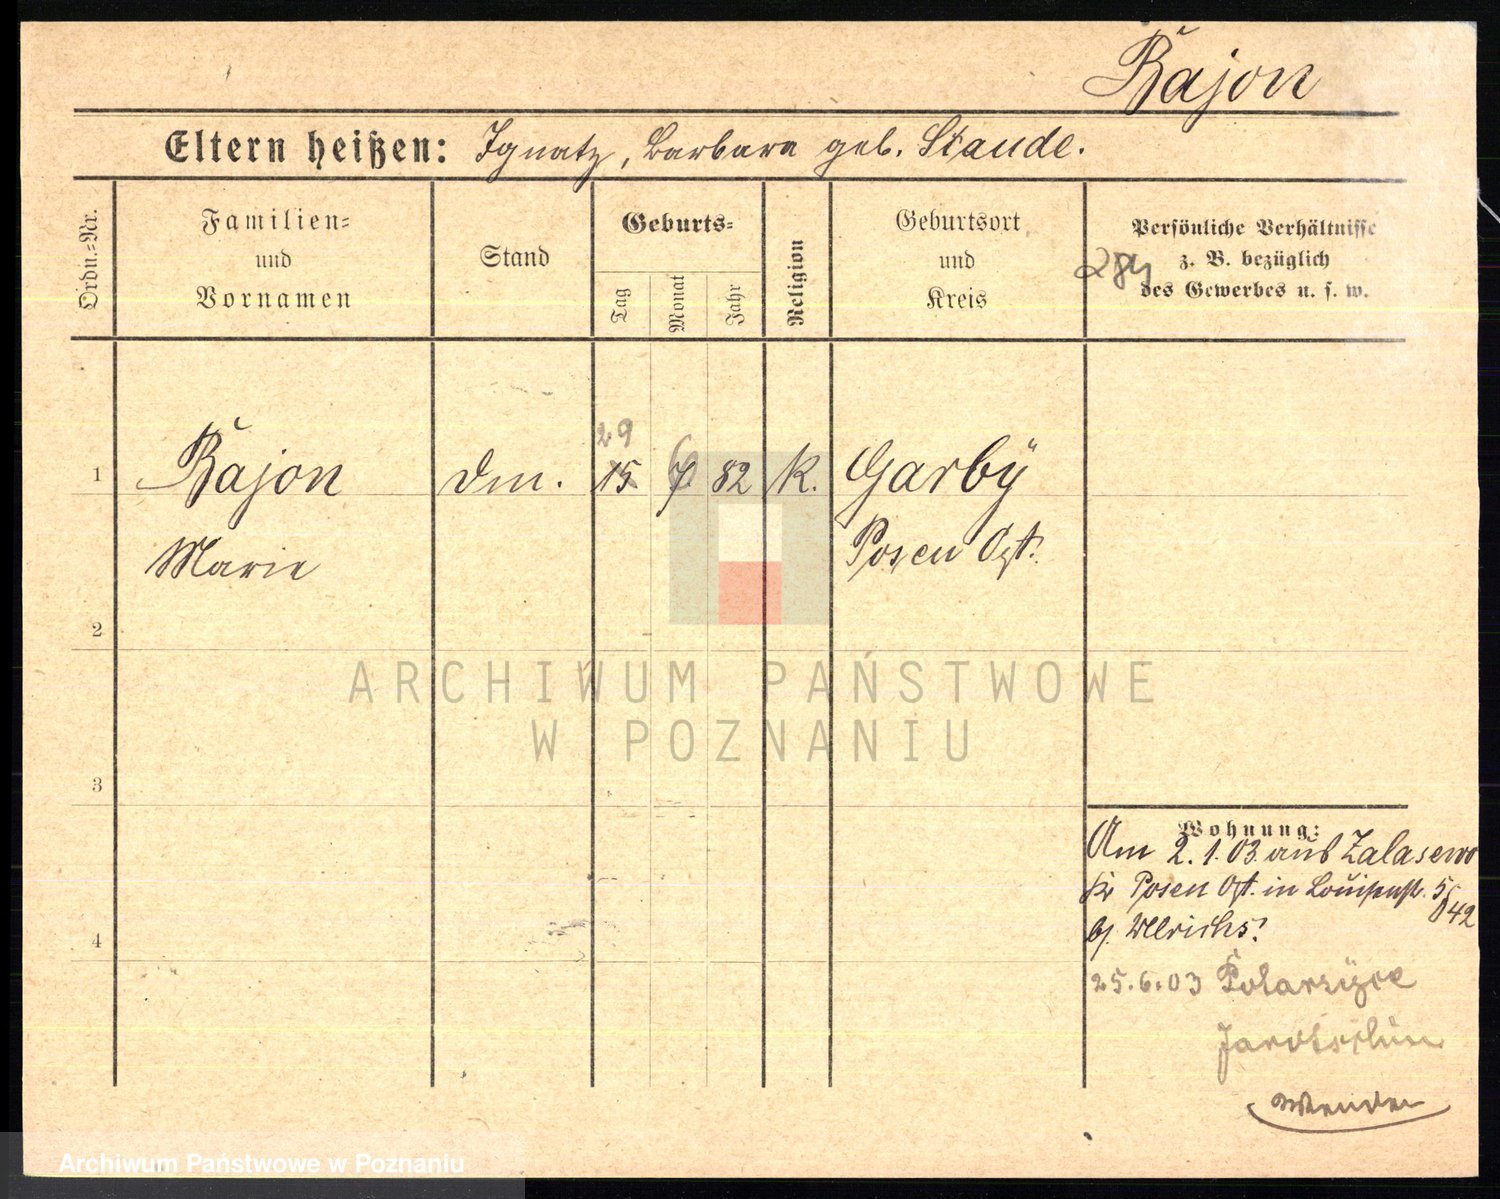 Bajon
Eltern heißen: Ignatz, Barbara geb. Staude.
Ordn.=Nr.
Familien=
und
Vornamen
Stand
Geburts=
Tag
Monat
Jahr
Religion
Geburtsort
und
Kreis
Persönliche Verhältnisse
z. B. bezüglich
des Gewerbes u. s. w.
284
29 6
1 Bajon dm. 15 7 82 K. Garbÿ
Marie Posen Ost.
2
ARCHIWUM PAŃSTWOWE
W POZNANIU
3
Wohnung:
Am 2.1.03. aus Zalasewo
Kr Posen Ost. in Louisenstr. 5
bj. Ullrichs.
042
4
25.6.03
Jarotschin
Wenden
Archiwum Państwowe w Poznaniu